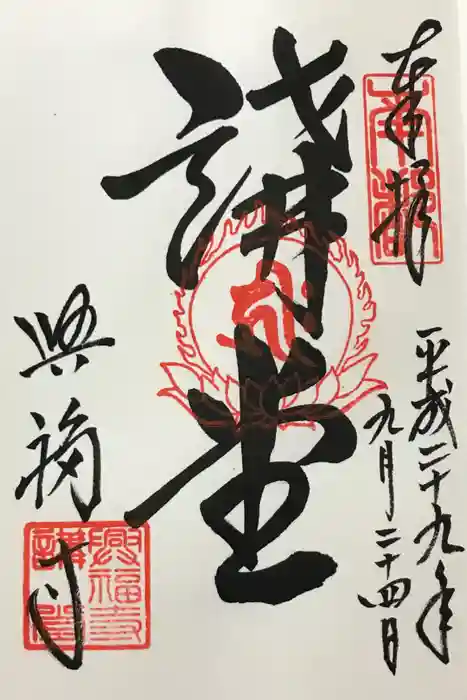 奉拝
平成二十九年
九月二十四日
講堂
興福寺
興福寺